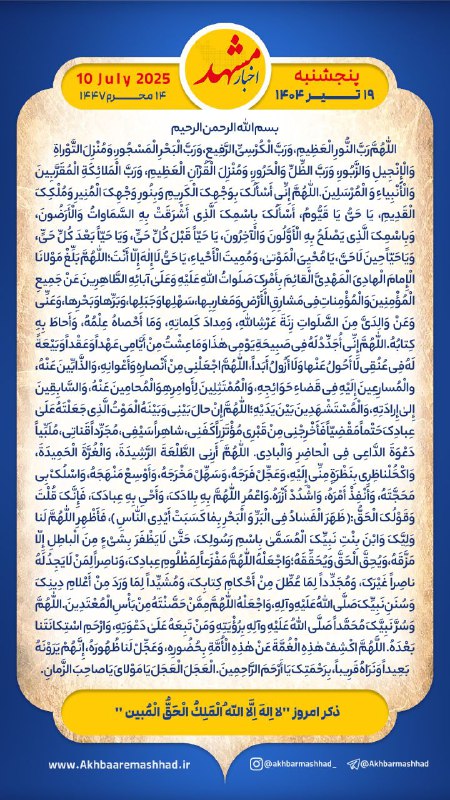 اخبار مشهد
پنجشنبه
۱۹ تـیـر ۱۴۰۴
10 July 2025
۱۴ محـرم ۱۴۴۷
بسم الله الرحمن الرحیم
اللهُمَّ رَبَّ النُّورِ الْعَظِیمِ، وَرَبَّ الْكُرْسِيِّ الرَّفِیعِ، وَرَبَّ الْبَحْرِ الْمَسْجُورِ، وَمُنْزِلَ التَّوْراةِ
وَالْإِنْجِیلِ وَالزَّبُورِ وَرَبَّ الظِّلِّ وَالْحَرُورِ، وَمُنْزِلَ الْقُرْآنِ الْعَظِیمِ، وَرَبَّ الْمَلائِكَةِ الْمُقَرَّبِینَ
وَالْأَنْبِیاءِ وَالْمُرْسَلِینَ، اللَّهُمَّ إِنِّی أَسْأَلُکَ بِوَجْهِکَ الْکَرِیمِ وَبِنُورِ وَجْهِکَ الْمُنِیرِ وَمُلْکِکَ
الْقَدِیمِ، یَا حَیُّ یَا قَیُّومُ، أَسْأَلُکَ بِاسْمِکَ الَّذِی أَشْرَقَتْ بِهِ السَّمَاوَاتُ وَالْأَرَضُونَ،
وَبِاسْمِکَ الَّذِی یَصْلَحُ بِهِ الْأَوَّلُونَ وَالْآخِرُونَ، یَا حَیّاً قَبْلَ کُلِّ حَیٍّ، وَیَا حَیّاً بَعْدَ کُلِّ حَیٍّ،
وَیَا حَیّاً حِینَ لَا حَیَّ، یَا مُحْیِیَ الْمَوْتیٰ، وَمُمِیتَ الْأَحْیاءِ، یَا حَیُّ لَا إِلٰهَ إِلّا أَنْتَ؛ اللّٰهُمَّ بَلِّغْ مَوْلانَا
الْإِمامَ الْهادِیَ الْمَهْدِیَّ الْقائِمَ بِأَمْرِکَ صَلَواتُ اللّٰهِ عَلَیْهِ وَعَلَیٰ آبائِهِ الطَّاهِرِینَ عَنْ جَمِیعِ
الْمُؤْمِنِینَ وَالْمُؤْمِناتِ فِی مَشارِقِ الْأَرْضِ وَمَغارِبِها، سَهْلِها وَجَبَلِها، وَبَرِّها وَبَحْرِها، وَعَنِّی
وَعَنْ وَالِدَیَّ مِنَ الصَّلَواتِ زِنَةَ عَرْشِ اللّٰهِ، وَمِدادَ کَلِماتِهِ، وَمَا أَحْصاهُ عِلْمُهُ، وَأَحاطَ بِهِ
کِتابُهُ. اللّٰهُمَّ إِنِّی أُجَدِّدُ لَهُ فِی صَبِیحَةِ یَوْمِی هٰذَا وَمَا عِشْتُ مِنْ أَیَّامِی عَهْداً وَعَقْداً وَبَیْعَةً
لَهُ فِی عُنُقِی لَا أَحُولُ عَنْها وَلَا أَزُولُ أَبَداً، اللّٰهُمَّ اجْعَلْنِی مِنْ أَنْصارِهِ وَأَعْوانِهِ، وَالذَّابِّینَ عَنْهُ،
وَالْمُسارِعِینَ إِلَیْهِ فِی قَضاءِ حَوَائِجِهِ، وَالْمُمْتَثِلِینَ لِأَوامِرِهِ وَالْمُحامِینَ عَنْهُ، وَالسَّابِقِینَ
إِلیٰ إِرادَتِهِ، وَالْمُسْتَشْهَدِینَ بَیْنَ یَدَیْهِ؛ اللّٰهُمَّ إِنْ حالَ بَیْنِی وَبَیْنَهُ الْمَوْتُ الَّذِی جَعَلْتَهُ عَلَیٰ
عِبادِکَ حَتْماً مَقْضِیّاً فَأَخْرِجْنِی مِنْ قَبْرِی مُؤْتَزِراً کَفَنِی، شاهِراً سَیْفِی، مُجَرِّداً قَناتِی، مُلَبِّیاً
دَعْوَةَ الدَّاعِی فِی الْحاضِرِ وَالْبادِی. اللّٰهُمَّ أَرِنِی الطَّلْعَةَ الرَّشِیدَةَ، وَالْغُرَّةَ الْحَمِیدَةَ،
وَاکْحُلْ ناظِرِی بِنَظْرَةٍ مِنِّی إِلَیْهِ، وَعَجِّلْ فَرَجَهُ، وَسَهِّلْ مَخْرَجَهُ، وَأَوْسِعْ مَنْهَجَهُ، وَاسْلُکْ بِی
مَحَجَّتَهُ، وَأَنْفِذْ أَمْرَهُ، وَاشْدُدْ أَزْرَهُ. وَاعْمُرِ اللّٰهُمَّ بِهِ بِلادَکَ، وَأَحْیِ بِهِ عِبادَکَ، فَإِنَّکَ قُلْتَ
وَقَوْلُکَ الْحَقُّ: (ظَهَرَ الْفَسادُ فِی الْبَرِّ وَ الْبَحْرِ بِمَا کَسَبَتْ أَیْدِی النَّاسِ)، فَأَظْهِرِ اللّٰهُمَّ لَنا
وَلِیَّکَ وَابْنَ بِنْتِ نَبِیِّکَ الْمُسَمَّیٰ بِاسْمِ رَسُولِکَ، حَتَّیٰ لَا یَظْفَرَ بِشَیْءٍ مِنَ الْباطِلِ إِلّا
مَزَّقَهُ، وَیُحِقَّ الْحَقَّ وَیُحَقِّقَهُ؛ وَاجْعَلْهُ اللّٰهُمَّ مَفْزَعاً لِمَظْلُومِ عِبادِکَ، وَناصِراً لِمَنْ لَا یَجِدُ لَهُ
ناصِراً غَیْرَکَ، وَمُجَدِّداً لِمَا عُطِّلَ مِنْ أَحْکامِ کِتابِکَ، وَمُشَیِّداً لِمَا وَرَدَ مِنْ أَعْلامِ دِینِکَ
وَسُنَنِ نَبِیِّکَ صَلَّی اللّٰهُ عَلَیْهِ وَآلِهِ، وَاجْعَلْهُ اللّٰهُمَّ مِمَّنْ حَصَّنْتَهُ مِنْ بَأْسِ الْمُعْتَدِینَ، اللّٰهُمَّ
وَسُرَّ نَبِیَّکَ مُحَمَّداً صَلَّی اللّٰهُ عَلَیْهِ وَآلِهِ بِرُؤْیَتِهِ وَمَنْ تَبِعَهُ عَلَیٰ دَعْوَتِهِ، وَارْحَمِ اسْتِکانَتَنا
بَعْدَهُ. اللّٰهُمَّ اکْشِفْ هٰذِهِ الْغُمَّةَ عَنْ هٰذِهِ الْأُمَّةِ بِحُضُورِهِ، وَعَجِّلْ لَنا ظُهُورَهُ، إِنَّهُمْ یَرَوْنَهُ
بَعِیداً وَنَرَاهُ قَرِیباً، بِرَحْمَتِکَ یَا أَرْحَمَ الرَّاحِمِینَ. الْعَجَلَ الْعَجَلَ یَا مَوْلایَ یَا صاحِبَ الزَّمانِ.
ذکر امروز "لا إِلهَ إِلَّا اللّهُ الْمَلِکُ الْحَقُّ الْمُبین"
www.Akhbaaremashhad.ir
@akhbarmashhad_
@Akhbarmashhad